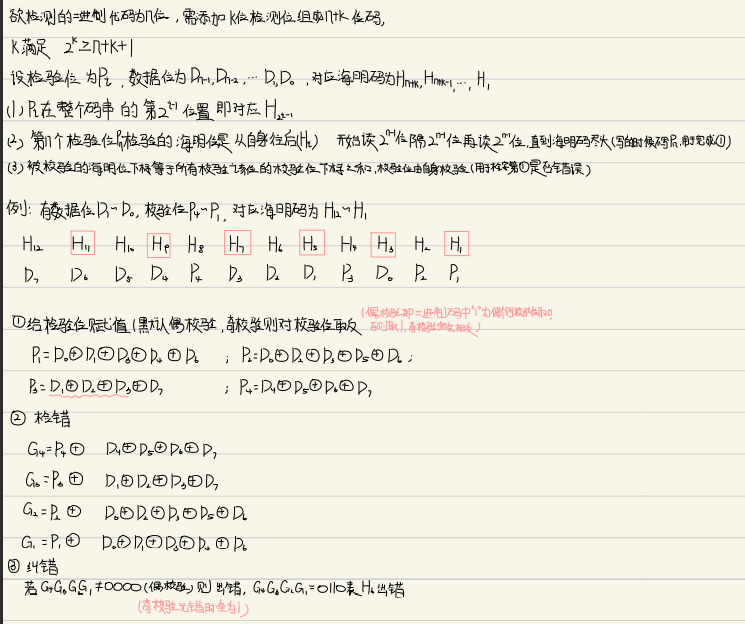 欲检测的二进制代码为n位，需添加k位检测位组成n+k位码，
k满足 2^k ≥ n+k+1
设检验位为P_i，数据位为D_{n-1}, D_{n-2}, … D_1 D_0，对应海明码为H_{n+k}, H_{n+k-1}, …, H_1
(1) P_i在整个码串的第2^{i-1}位置 即对应H_{2^{i-1}}
(2) 第n个检验位P_n检验的海明位是从自身位后 开始读2^{n-1}位隔2^{n-1}位再读2^{n-1}位，直到海明码尽头
(3) 被校验的海明位下标等于所有校验该位的校验位下标之和，校验位由自身校验
例：有数据位D_7~D_0，校验位P_4~P_1，对应海明码为H_12~H_1
H_12 H_11 H_10 H_9 H_8 H_7 H_6 H_5 H_4 H_3 H_2 H_1
D_7 D_6 D_5 D_4 P_4 D_3 D_2 D_1 P_3 D_0 P_2 P_1
①给检验位赋值(默认偶校验，奇校验则对校验位取反
(偶校验即二进制码中"1"为偶则校验位取0，
否则取1，奇校验则相反)
P_1=D_0⊕D_1⊕D_3⊕D_4⊕D_6 ; P_2=D_0⊕D_2⊕D_3⊕D_5⊕D_6 ;
P_3=D_1⊕D_2⊕D_3⊕D_7 ; P_4=D_4⊕D_5⊕D_6⊕D_7
② 检错
G_4=P_4⊕ D_4⊕D_5⊕D_6⊕D_7
G_3=P_3⊕ D_1⊕D_2⊕D_3⊕D_7
G_2=P_2⊕ D_0⊕D_2⊕D_3⊕D_5⊕D_6
G_1=P_1⊕ D_0⊕D_1⊕D_3⊕D_4⊕D_6
③ 纠错
若G_4G_3G_2G_1≠0000(偶校验)则出错，G_4G_3G_2G_1=0110表H_6出错
(奇校验无错时全为1)